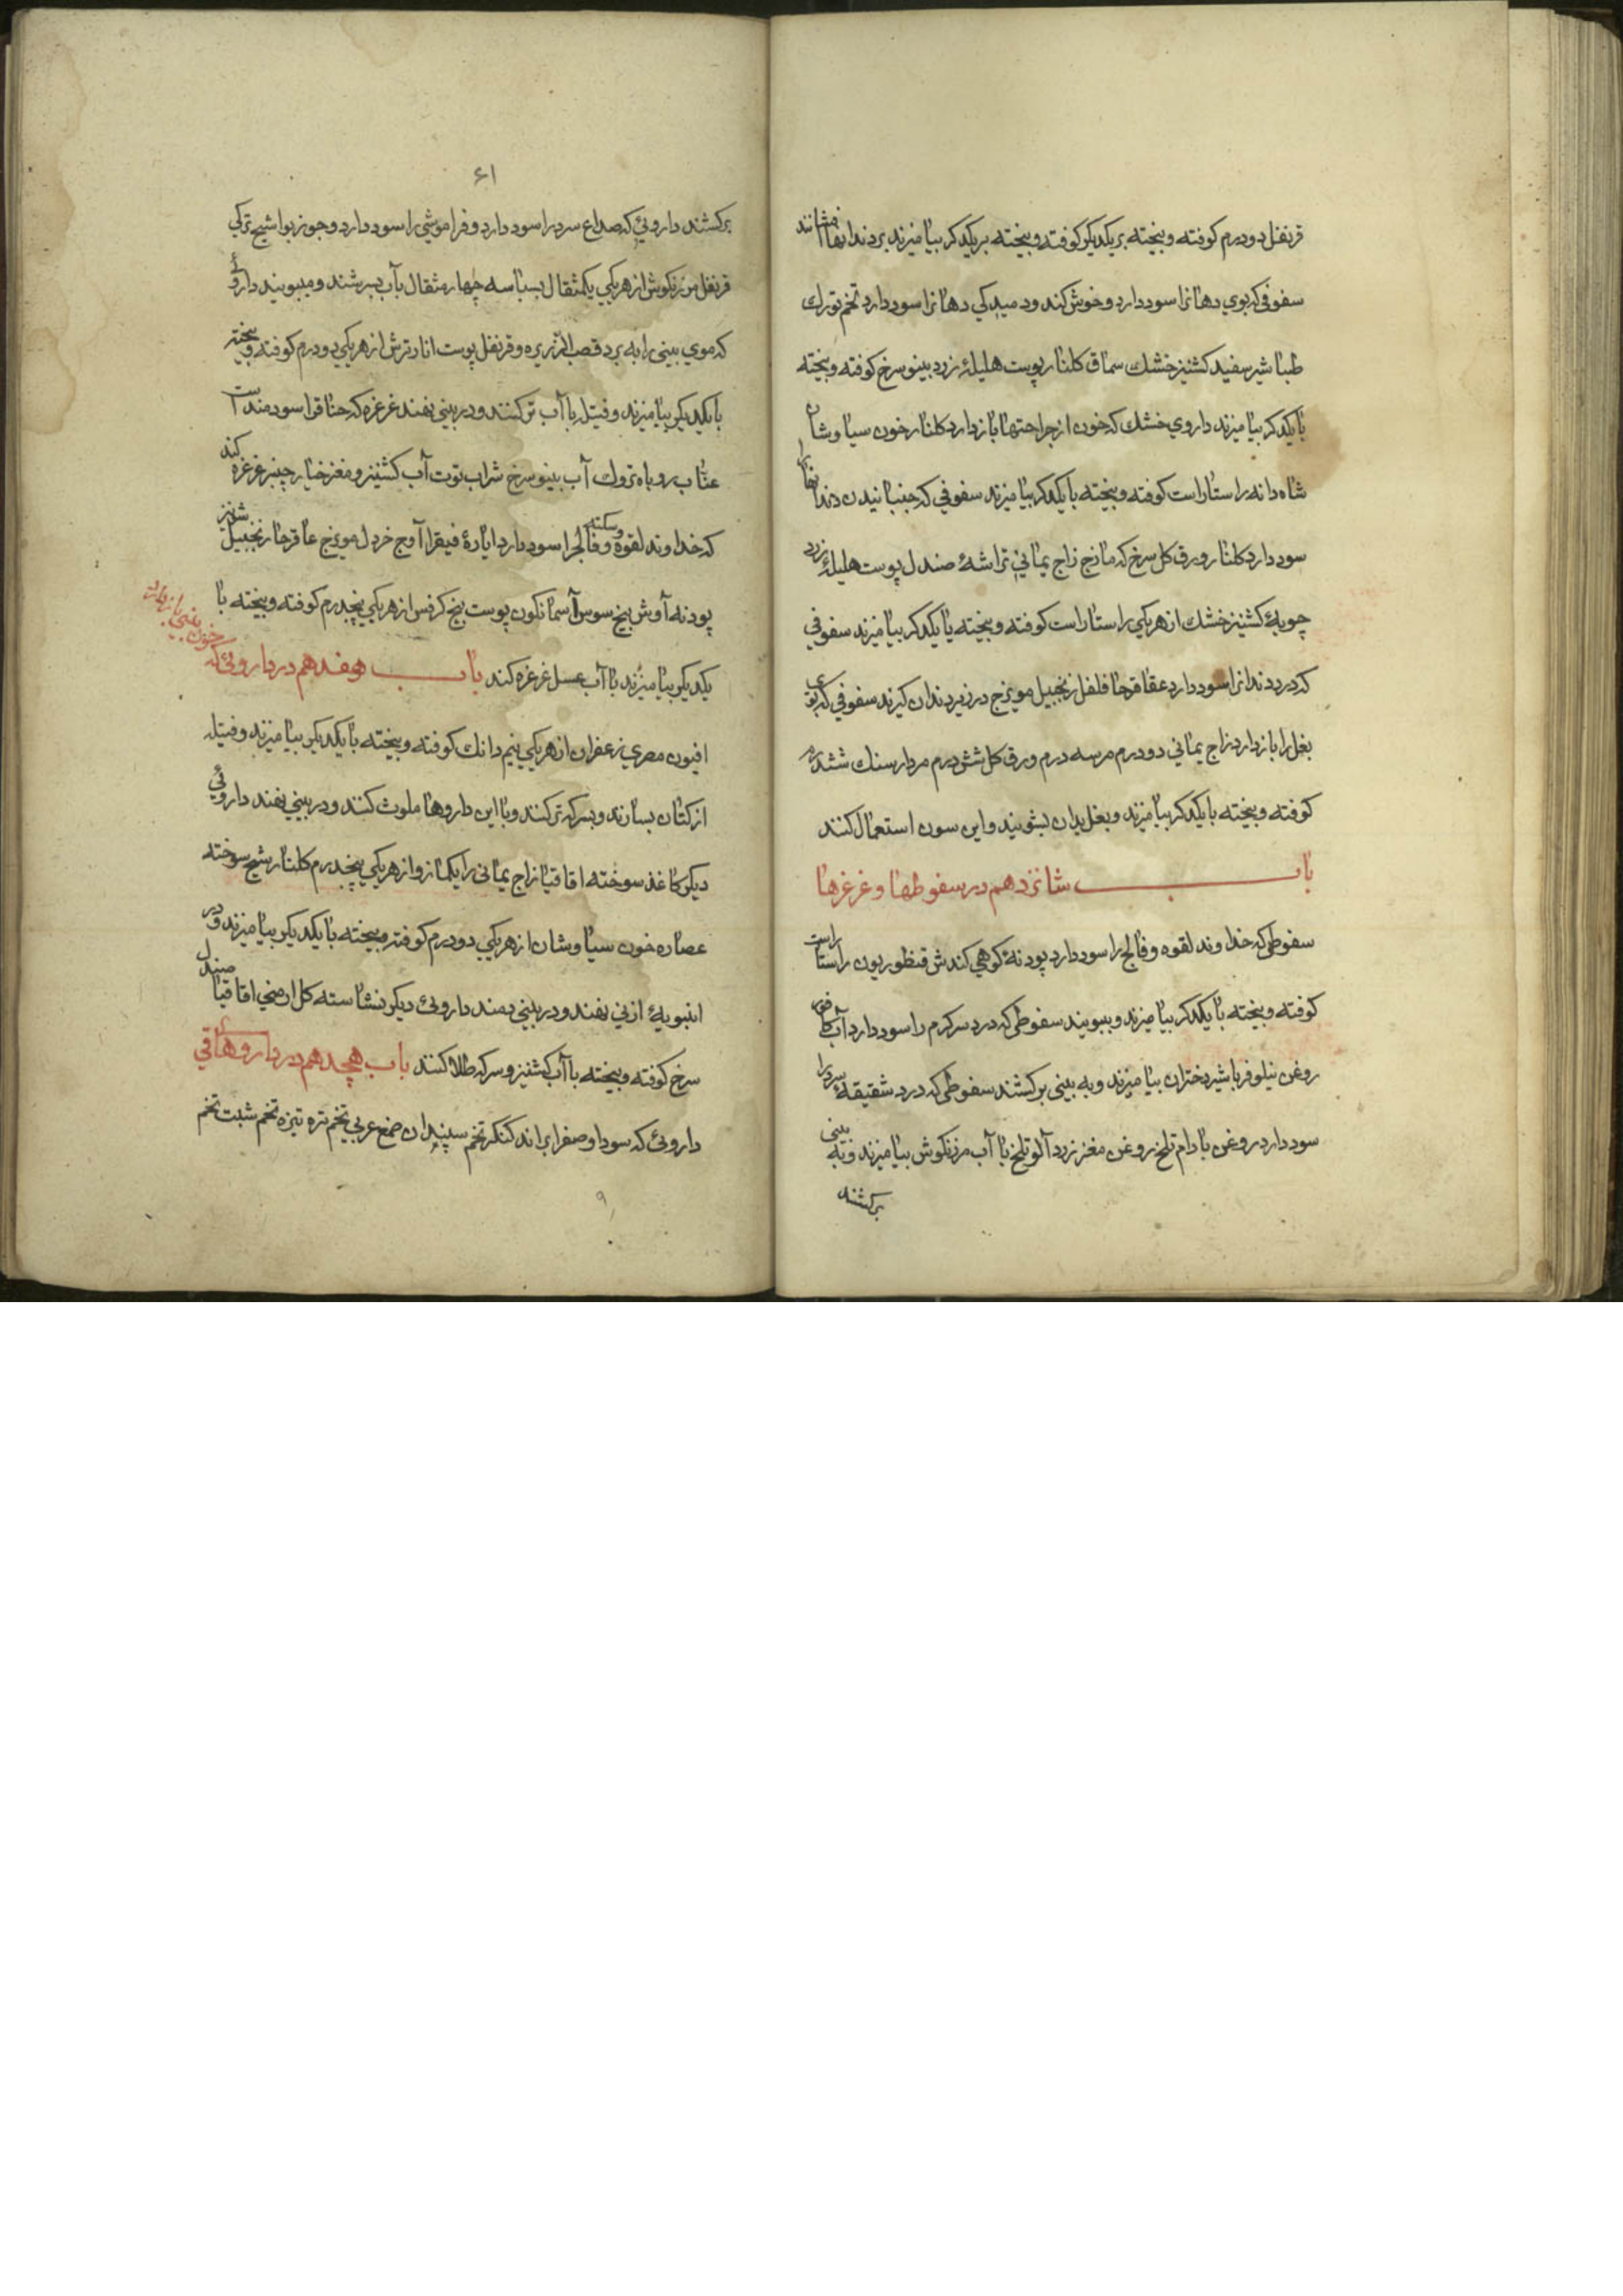 قرنفل دودرم کوفته وبیخته بریکدیکر کوفته وبیخته بریکدکر بیامیزند بردندانها افشانند
سفوفی که بوی دهانرا سود دارد وخوش کند ودمیدکی دهانرا سود دارد تخم تورك
طباشیر سفید کشنیز خشك سماق کلنار پوست هلیلهٔ زرد بینو سرخ کوفته وبیخته
بایکدکر بیامیزند داروی خشك که خون از جراحتها بازدارد کلنار خون سیاوشان
شاه دانه راستاراست کوفته وبیخته بایکدکر بیامیزند سفوفی که جنبانیدن دندانهارا
سود دارد کلنار ورق کل سرخ کزمازج زاج یمانی تراشهٔ صندل پوست هلیلهٔ زرد
چوبهٔ کشنیز خشك ازهریکی راستاراست کوفته وبیخته بایکدکر بیامیزند سفوفی
که درد دندانرا سود دارد عقاقرحا فلفل زنجبیل مویزج در زیر دندان کیرند سفوفی که بوی
بغل را بازدارد زاج یمانی دودرم مرسه درم ورق کل شش درم مردارسنك ششدرم
کوفته وبیخته بایکدکر بیامیزند وبغل بدان بشویند واین سون استعمال کنند
باب شانزدهم در سفوطها وغرغرها
سفوطی که خداوند لقوه وفالج را سود دارد پودنهٔ کوهی کندش قنطوریون راستاراست
کوفته وبیخته بایکدکر بیامیزند وببویند سفوطی که درد سرکرم را سود دارد آب کافور
روغن نیلوفر باشیر دختران بیامیزند وبه بینی برکشند سفوطی که درد شقیقهٔ سردرا
سود دارد روغن بادام تلخ روغن مغز زردآلو تلخ باآب مرزنکوش بیامیزند وبه بینی
برکشند
۶۱
برکشند داروئی که صداع سرد را سود دارد وفراموشی را سود دارد وجوز بوا شیح ترکی
قرنفل مرزنکوش ازهریکی یکمثقال بسباسه چهار مثقال بآب بسرشند ومیبویند داروئی
که موی بینی را به برد قصب الذریره وقرنفل پوست انار ترش ازهریکی دودرم کوفته وبیخته
بایکدیکر بیامیزند وفتیله باآب ترکنند ودربینی نهند غرغره که خناق را سودمند است
عناب روباه تروك آب بینو سرخ شراب توت آب کشنیز ومغز خیار چنبر غرغره کند
که خداوند لقوه وسکته وفالج را سود دارد ایارهٔ فیقرا آوج خردل مویزج عاقرحا زنجبیل شونیز
پودنه آوش بیخ سوس آسمانکون پوست بیخ کرفس ازهریکی پنجدرم کوفته وبیخته با
یکدیکر بیامیزند باآب عسل غرغره کند باب هفدهم در داروئی که
خون بینی بازدارد
افیون مصری زعفران ازهریکی نیم دانك کوفته وبیخته بایکدیکر بیامیزند وفتیله
از کتان بسازند وبسرکه ترکنند وبا این داروها ملوث کنند ودربینی نهند داروئی
دیکر کاغذ سوخته اقاقیا زاج یمانی رایکمازو ازهریکی پنجدرم کلنار شیح سوخته
عصاره خون سیاوشان ازهریکی دودرم کوفته وبیخته بایکدیکر بیامیزند ودر
انبوبهٔ ازنی نهند ودربینی دمند داروئی دیکر نشاسته کل ارمنی اقاقیا صندل
سرخ کوفته وبیخته باآب کشنیز وسرکه طلا کنند باب هجدهم در داروهای قی
داروئی که سودا وصفرا براند کنکر تخم سپندان صمغ عربی تخم تره تیزه تخم شبت تخم
۹